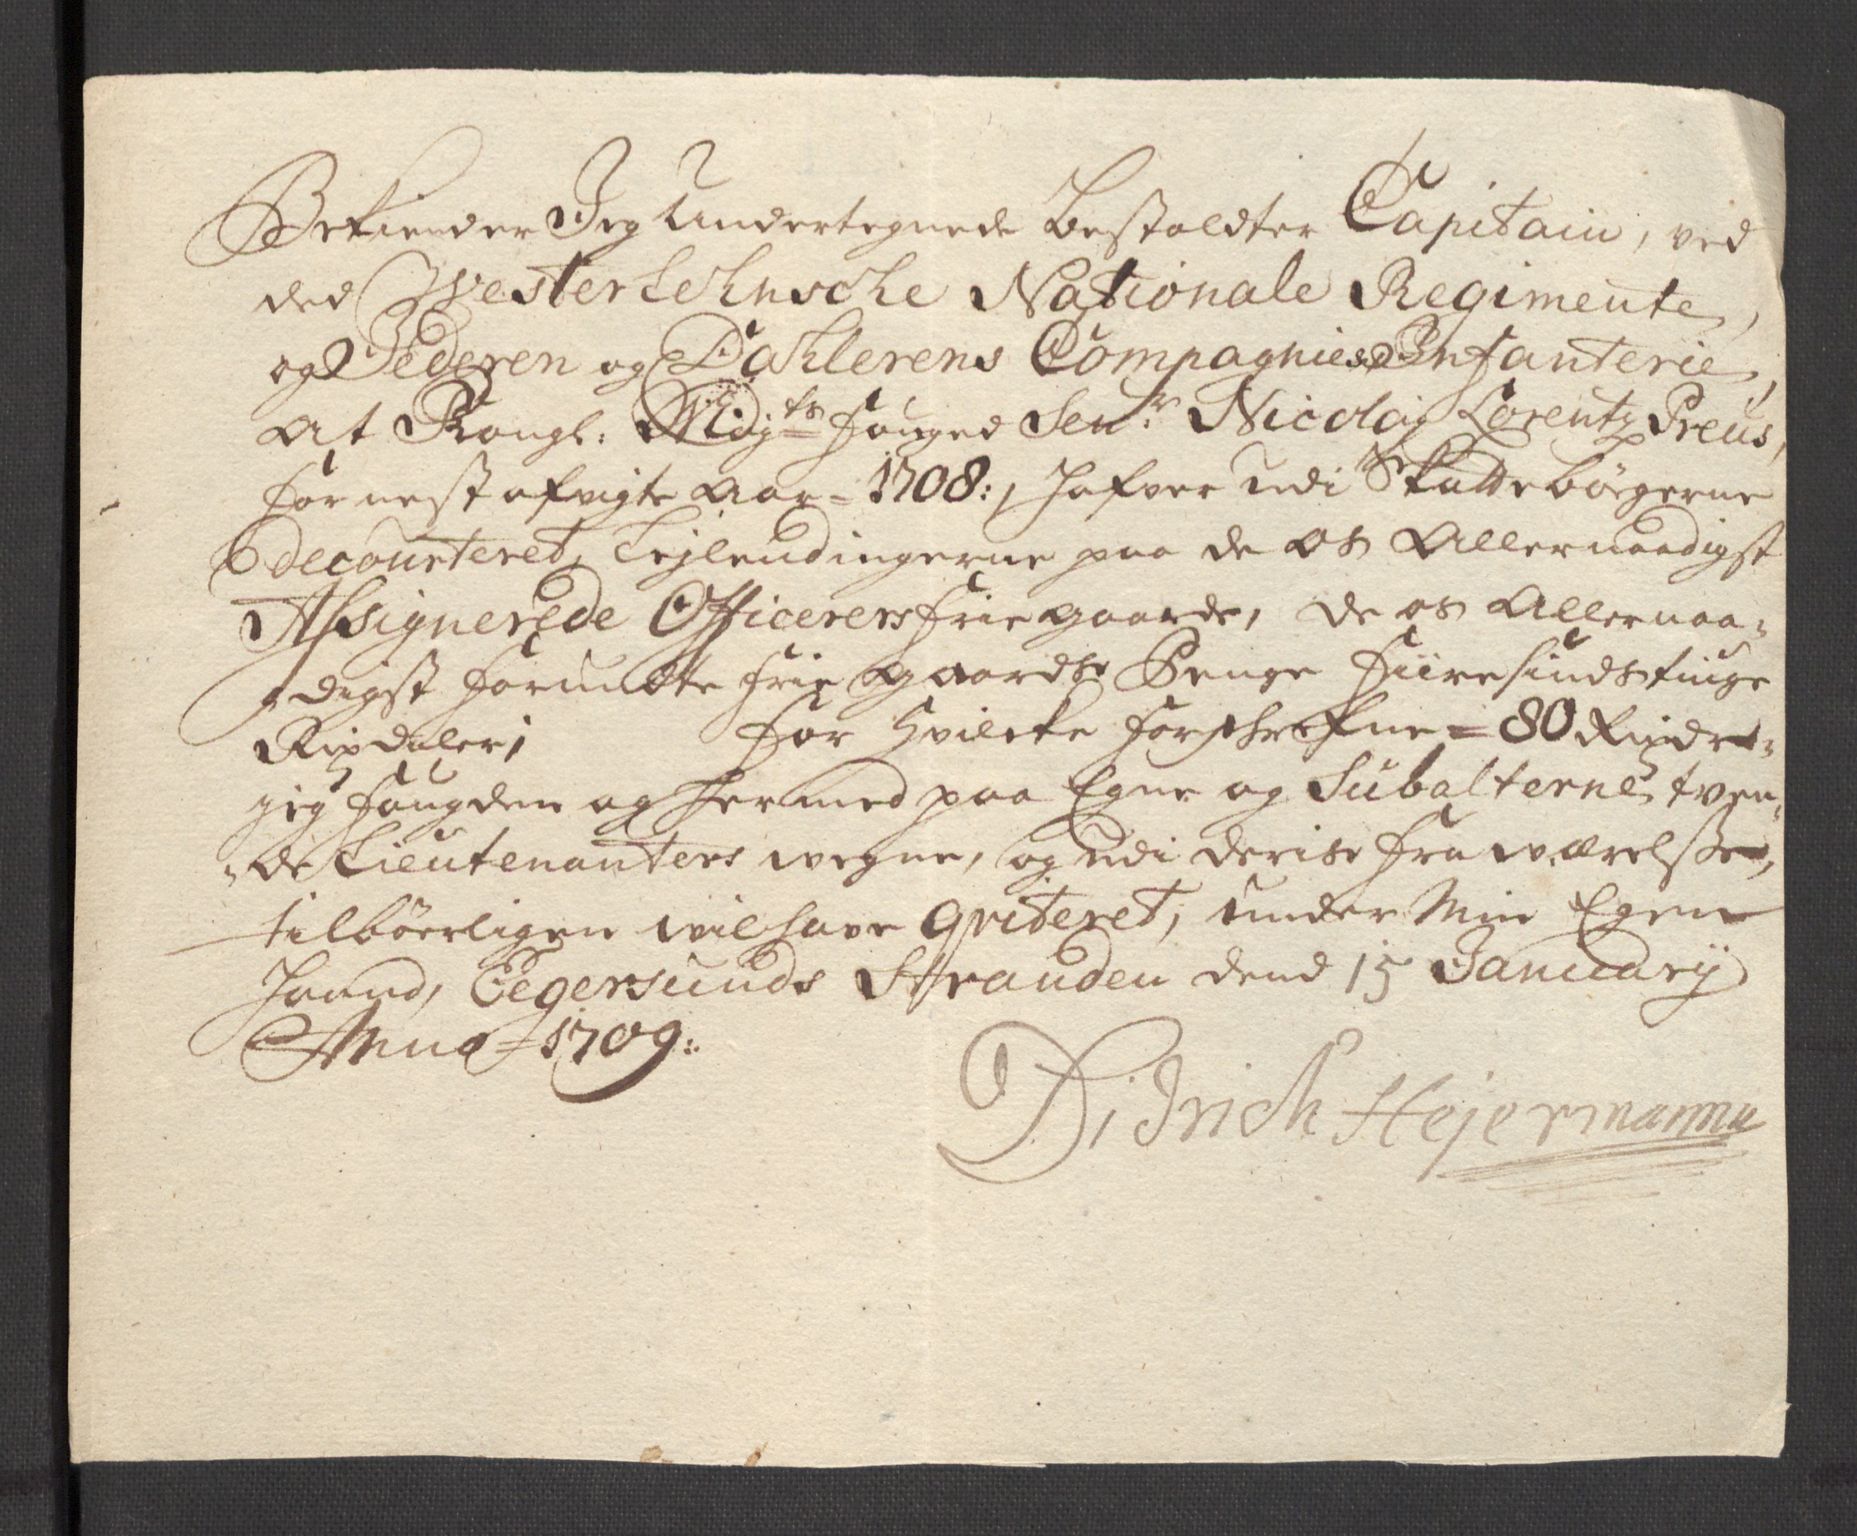 Bekiender Jeg Undertegnede Bestaldter Capitain, ved
ded Westerlehnsche Nationale Regimente,
og Jederen og Dahlerens Compagnies Infanterie,
At Kongl: Maÿ:ts Fouged Sen:r Nicolaÿ Lorentz Preus,
for nest afvigte Aar = 1708:, hafver udi Skattebögerne
decourteret, Lejlendingerne paa de os Allernaadigst
Assignerede Officerers frie gaarde, de os Allernaa-
digst forundte frie gaards Penge Fiiresindstiuge
Rixdaler, for Hvilcke forschrefne = 80 Rixdr:
jeg fougden og hermed paa Egne og Subalterne tven-
de Lieutenanters wegne, og udi deris fraværelsse,
tilbörligen wil have qviteret, under Min Egen
haand, Eegersunds Stranden dend 15 Januarÿ
Anno = 1709:
Didrich Hejermann